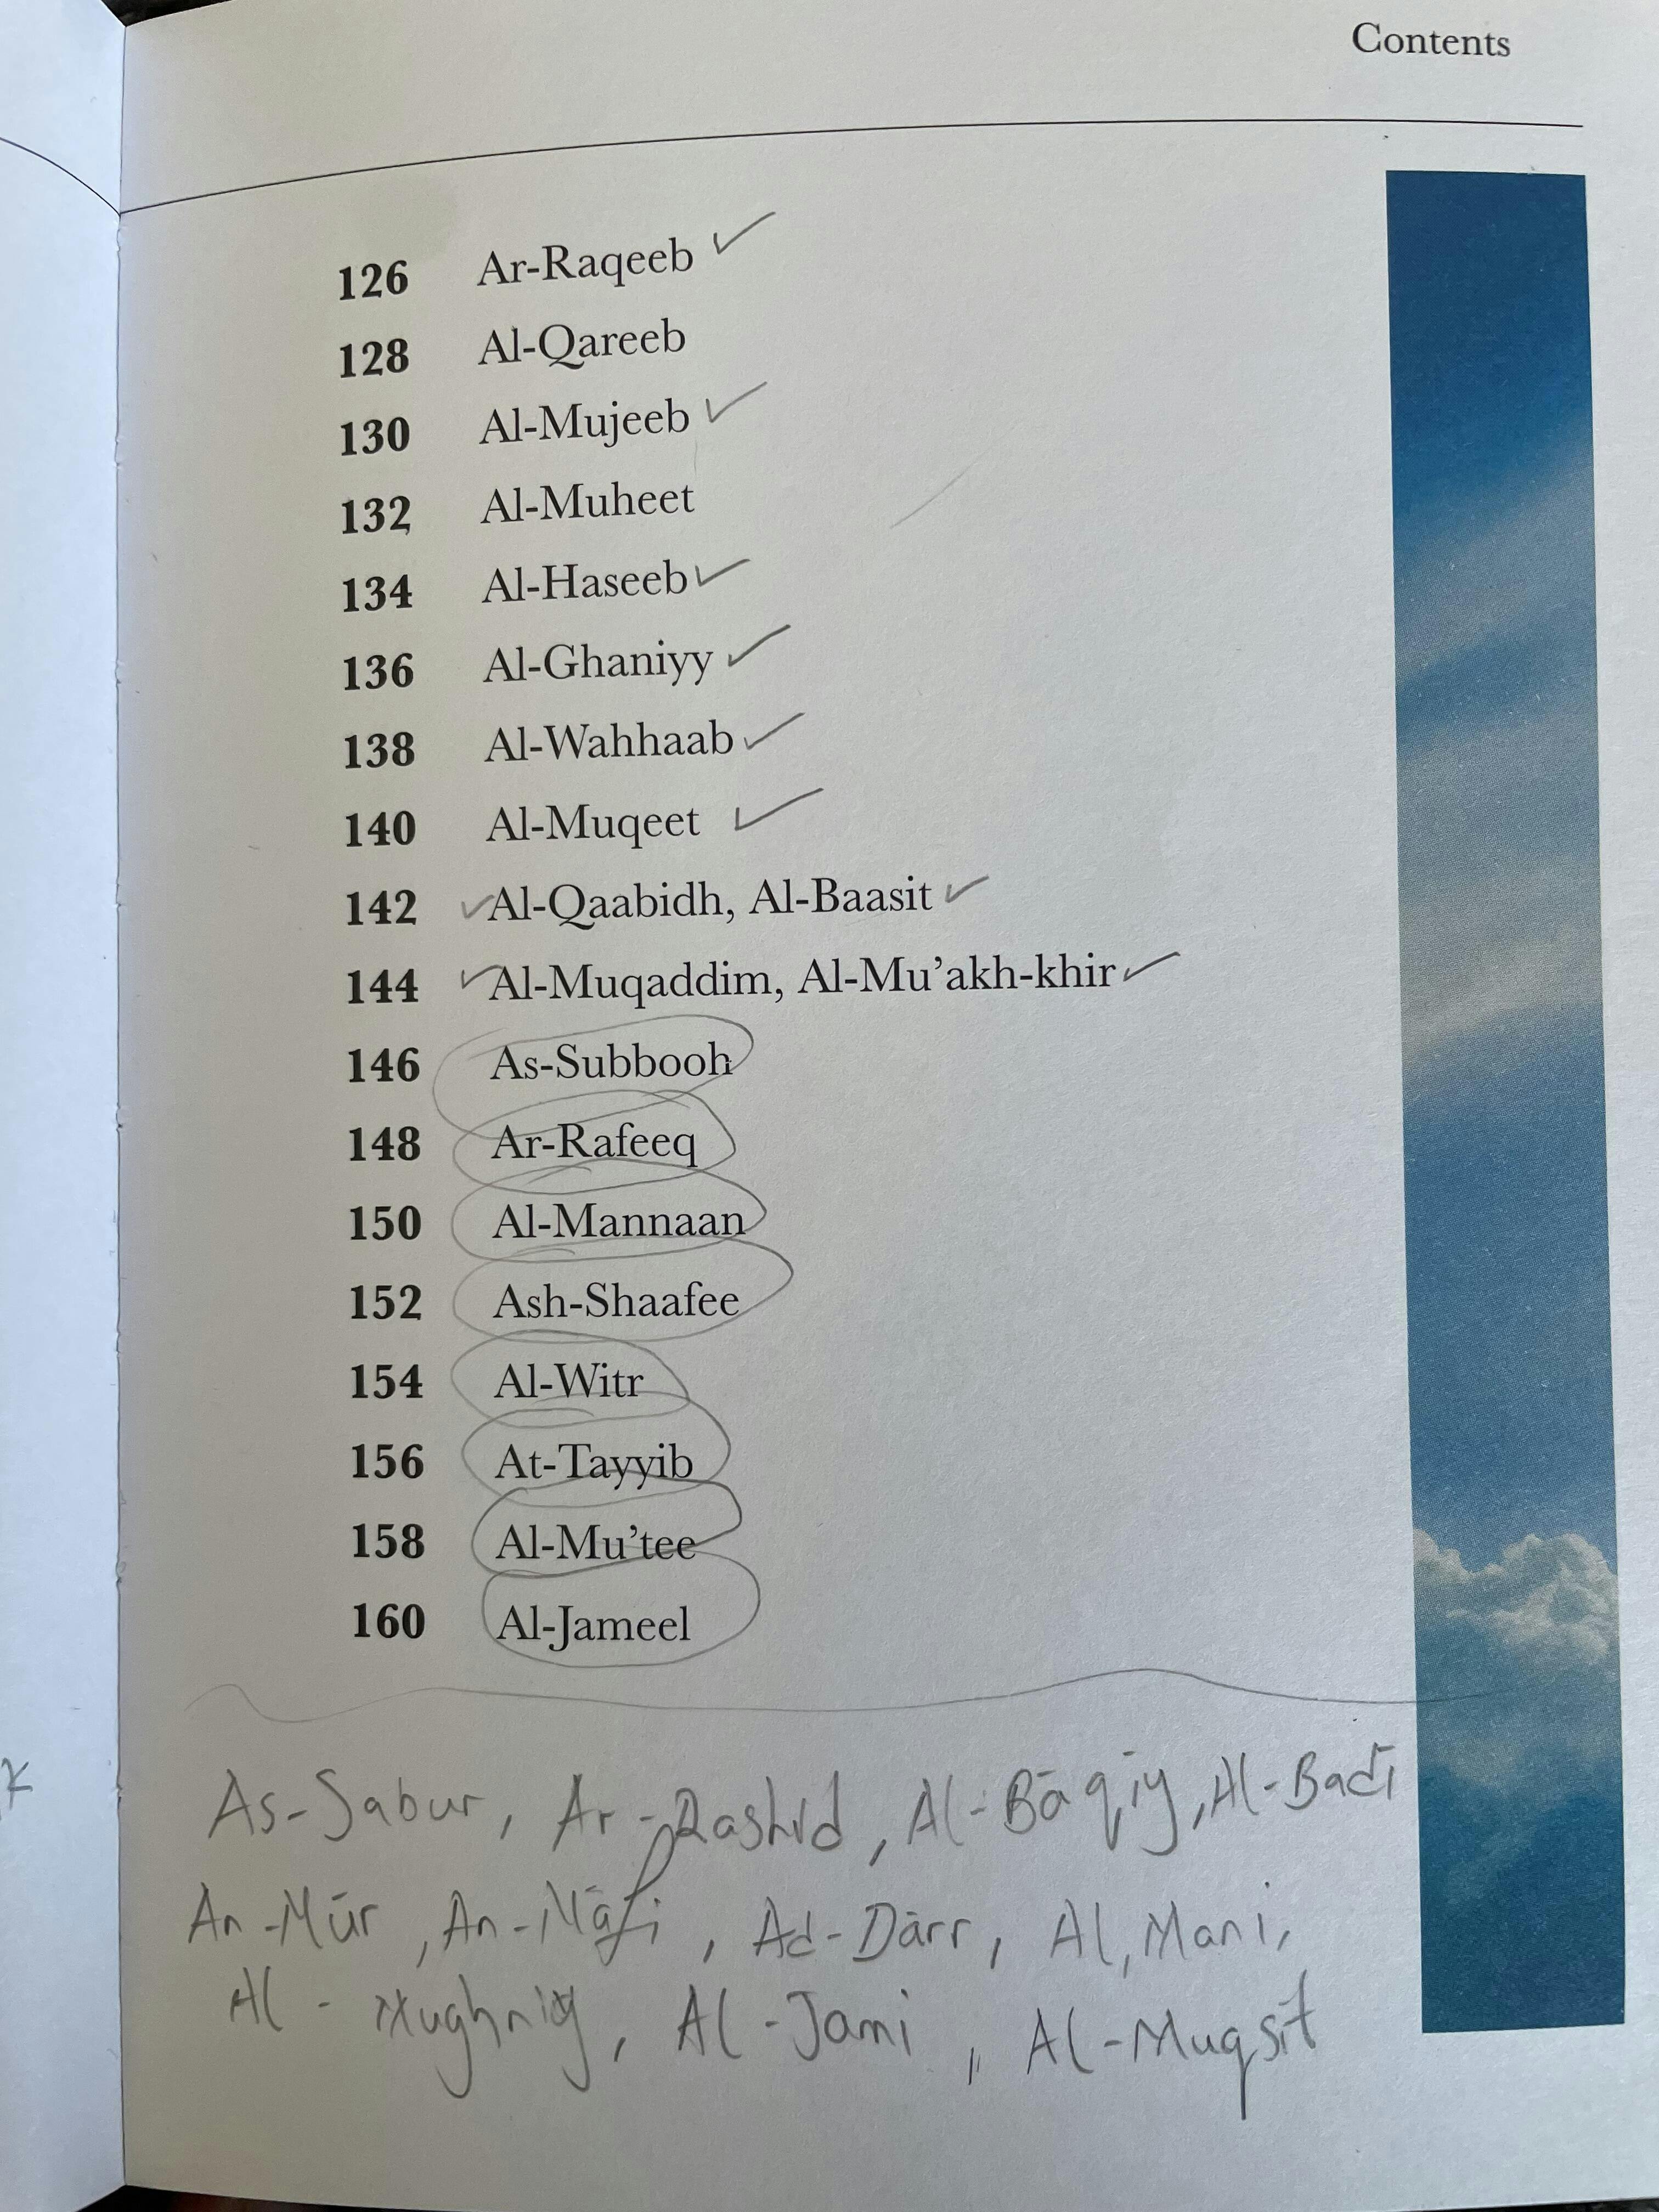 Contents
126 Ar-Raqeeb ✓
128 Al-Qareeb
130 Al-Mujeeb ✓
132 Al-Muheet
134 Al-Haseeb ✓
136 Al-Ghaniyy ✓
138 Al-Wahhaab ✓
140 Al-Muqeet ✓
142 ✓ Al-Qaabidh, Al-Baasit ✓
144 ✓ Al-Muqaddim, Al-Mu’akh-khir ✓
146 As-Subbooh
148 Ar-Rafeeq
150 Al-Mannaan
152 Ash-Shaafee
154 Al-Witr
156 At-Tayyib
158 Al-Mu’tee
160 Al-Jameel
As-Sabur, Ar-Rashid, Al-Bāqiy, Al-Badī
An-Nūr, An-Nāfi, Ad-Dārr, Al, Mani,
Al-Mughniy, Al-Jami, Al-Muqsit